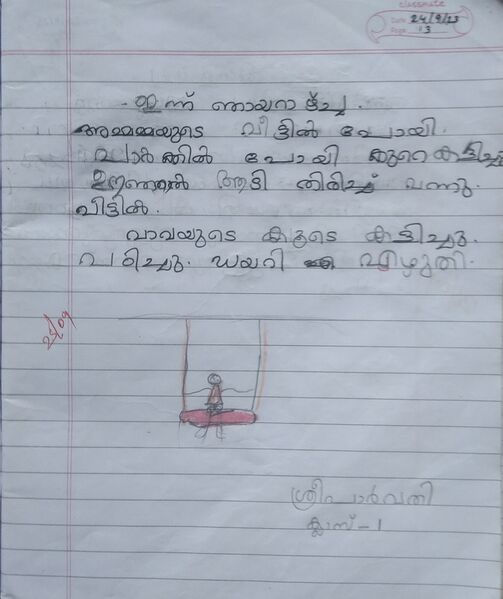 classmate
Date 24/9/23
Page 13
ഇന്ന് ഞായറാഴ്ച്ച.
അമ്മമ്മയുടെ വീട്ടിൽ പോയി.
പാർക്കിൽ പോയി കുറെ കളിച്ചു
ഊഞ്ഞാൽ ആടി തിരിച്ച് വന്നു.
വീട്ടിൽ.
വാവയുടെ കൂടെ കളിച്ചു.
പഠിച്ചു. ഡയറി എഴുതി.
25/09
ശ്രീപാർവതി
ക്ലാസ് - 1